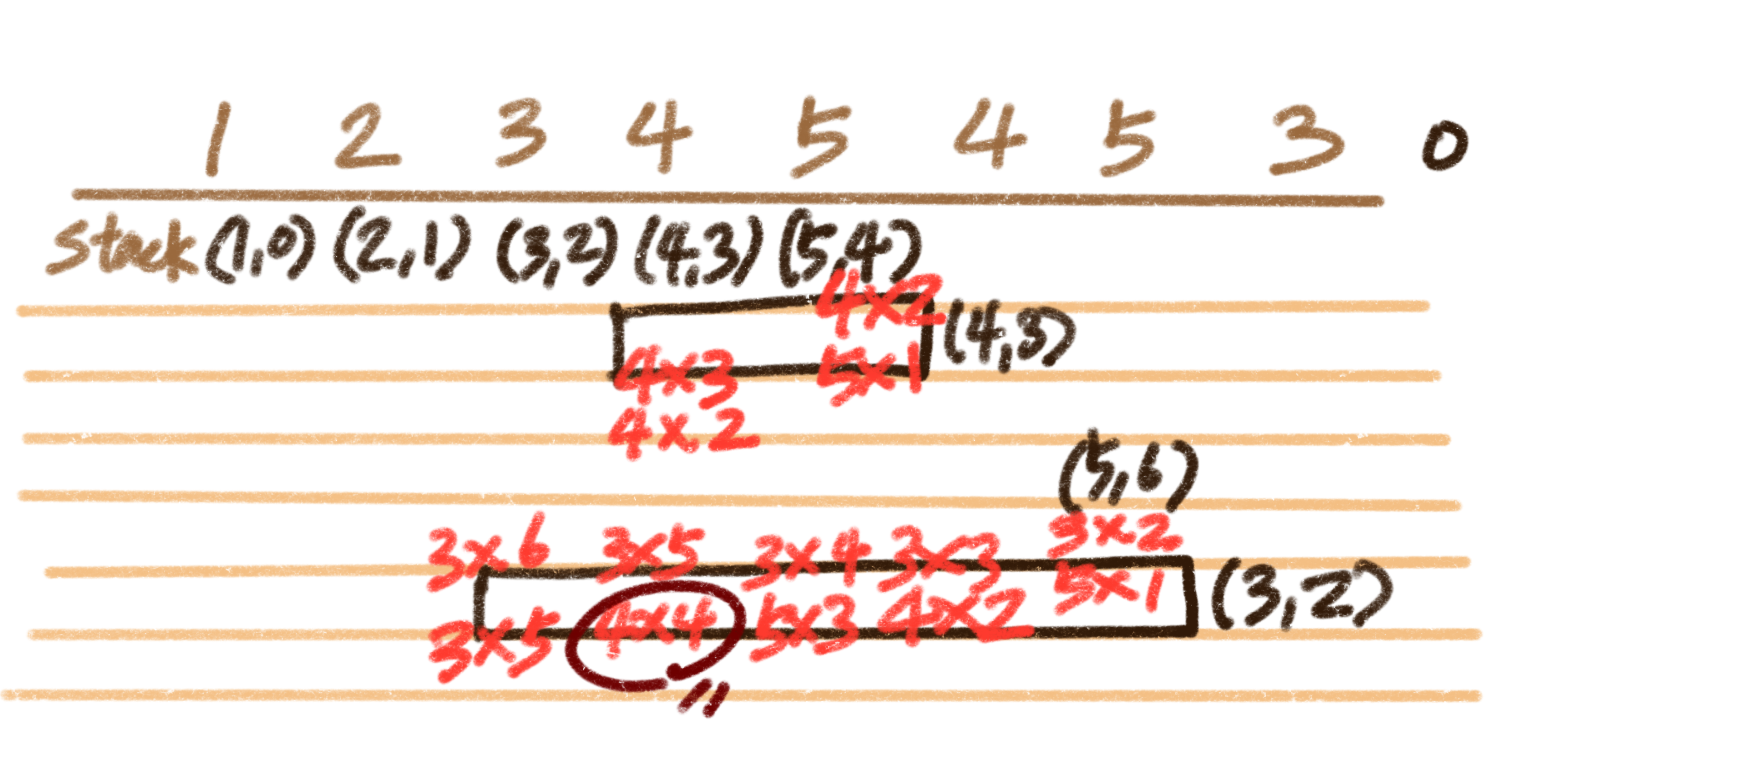 1 2 3 4 5 4 5 3 0
stack (1,0) (2,1) (3,2) (4,3) (5,4)
4x2
(4,3)
4x3 5x1
4x2
(5,6)
3x6 3x5 3x4 3x3 3x2
5x1 (3,2)
3x5 4x4 5x3 4x2